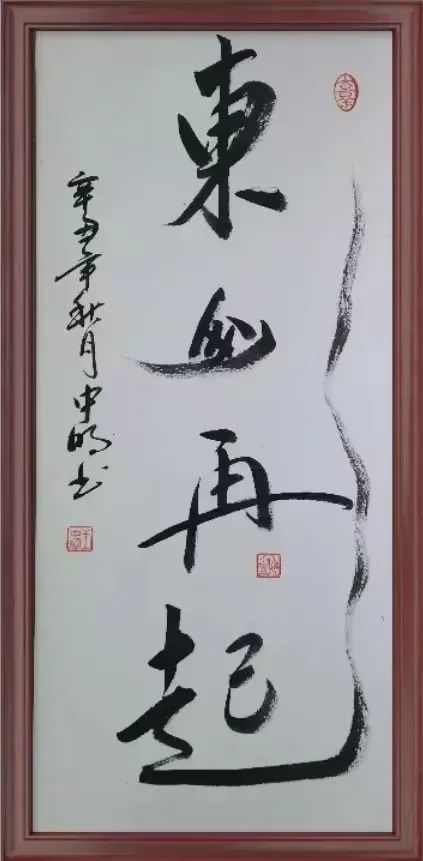 東山再起
辛丑年秋月中明书